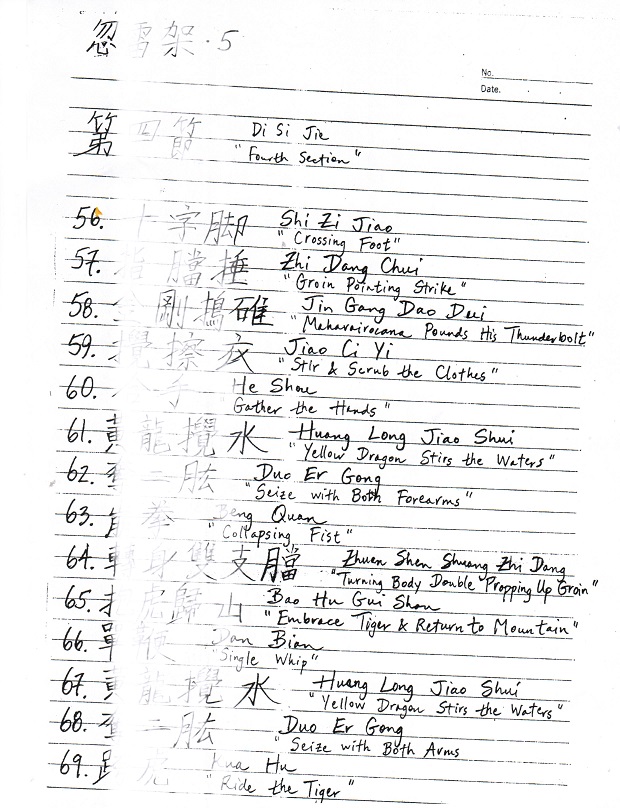 忽雷架.5
No.
Date.
第四節 Di Si Jie
"Fourth Section"
56. 十字脚 Shi Zi Jiao
"Crossing Foot"
57. 膛捶 Zhi Dang Chui
"Groin Pointing Strike"
58. 剛搗碓 Jin Gang Dao Dui
"Mahavairocana Pounds His Thunderbolt"
59. 攪擦衣 Jiao Ci Yi
"Stir & Scrub the Clothes"
60. 手 He Shou
Gather the Hands"
61. 黃龍攪水 Huang Long Jiao Shui
"Yellow Dragon Stirs the Waters"
62. 二肱 Duo Er Gong
"Seize with Both Forearms"
63. 拳 Beng Quan
"Collapsing Fist"
64. 轉身雙支膛 Zhuen Shen Shuang Zhi Dang
"Turning Body Double Propping Up Groin"
65. 虎歸山 Bao Hu Gui Shan
"Embrace Tiger & Return to Mountain"
66. 單鞭 Dan Bian
"Single Whip"
67. 黃龍攪水 Huang Long Jiao Shui
"Yellow Dragon Stirs the Waters"
68. 二肱 Duo Er Gong
"Seize with Both Arms
69. 虎 Kua Hu
"Ride the Tiger"